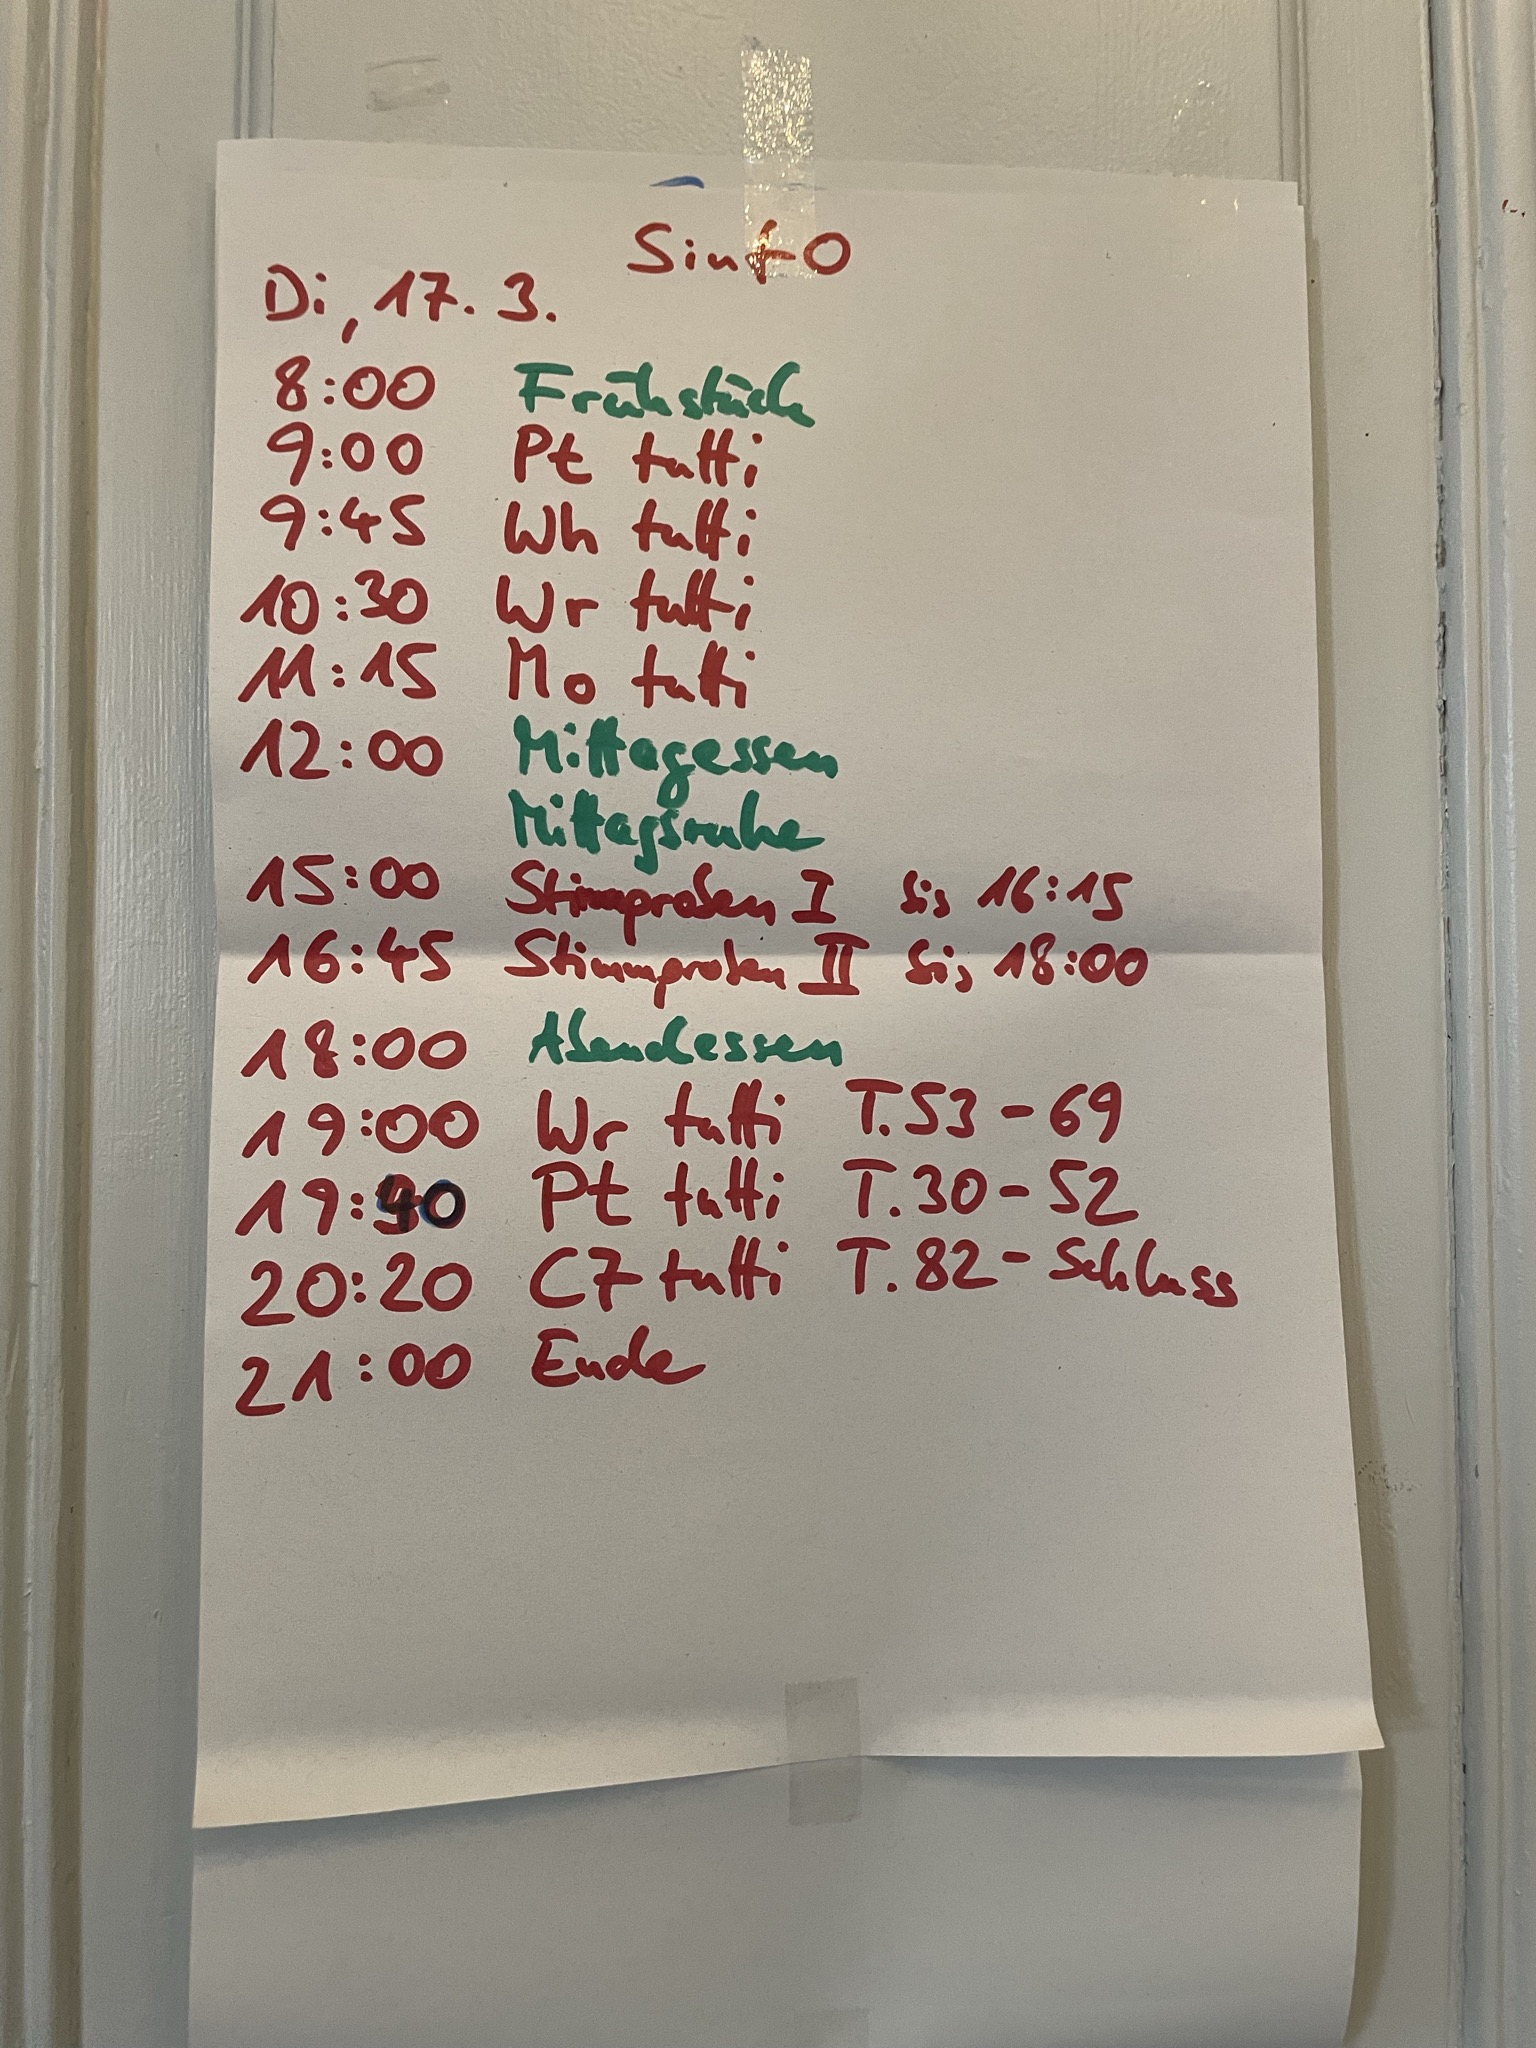 SinfO
Di, 17. 3.
8:00 Frühstück
9:00 Pt tutti
9:45 Wh tutti
10:30 Wr tutti
11:15 Mo tutti
12:00 Mittagessen
Mittagsruhe
15:00 Stimmproben I bis 16:15
16:45 Stimmproben II bis 18:00
18:00 Abendessen
19:00 Wr tutti T.53-69
19:40 Pt tutti T.30-52
20:20 C7 tutti T.82-Schluss
21:00 Ende